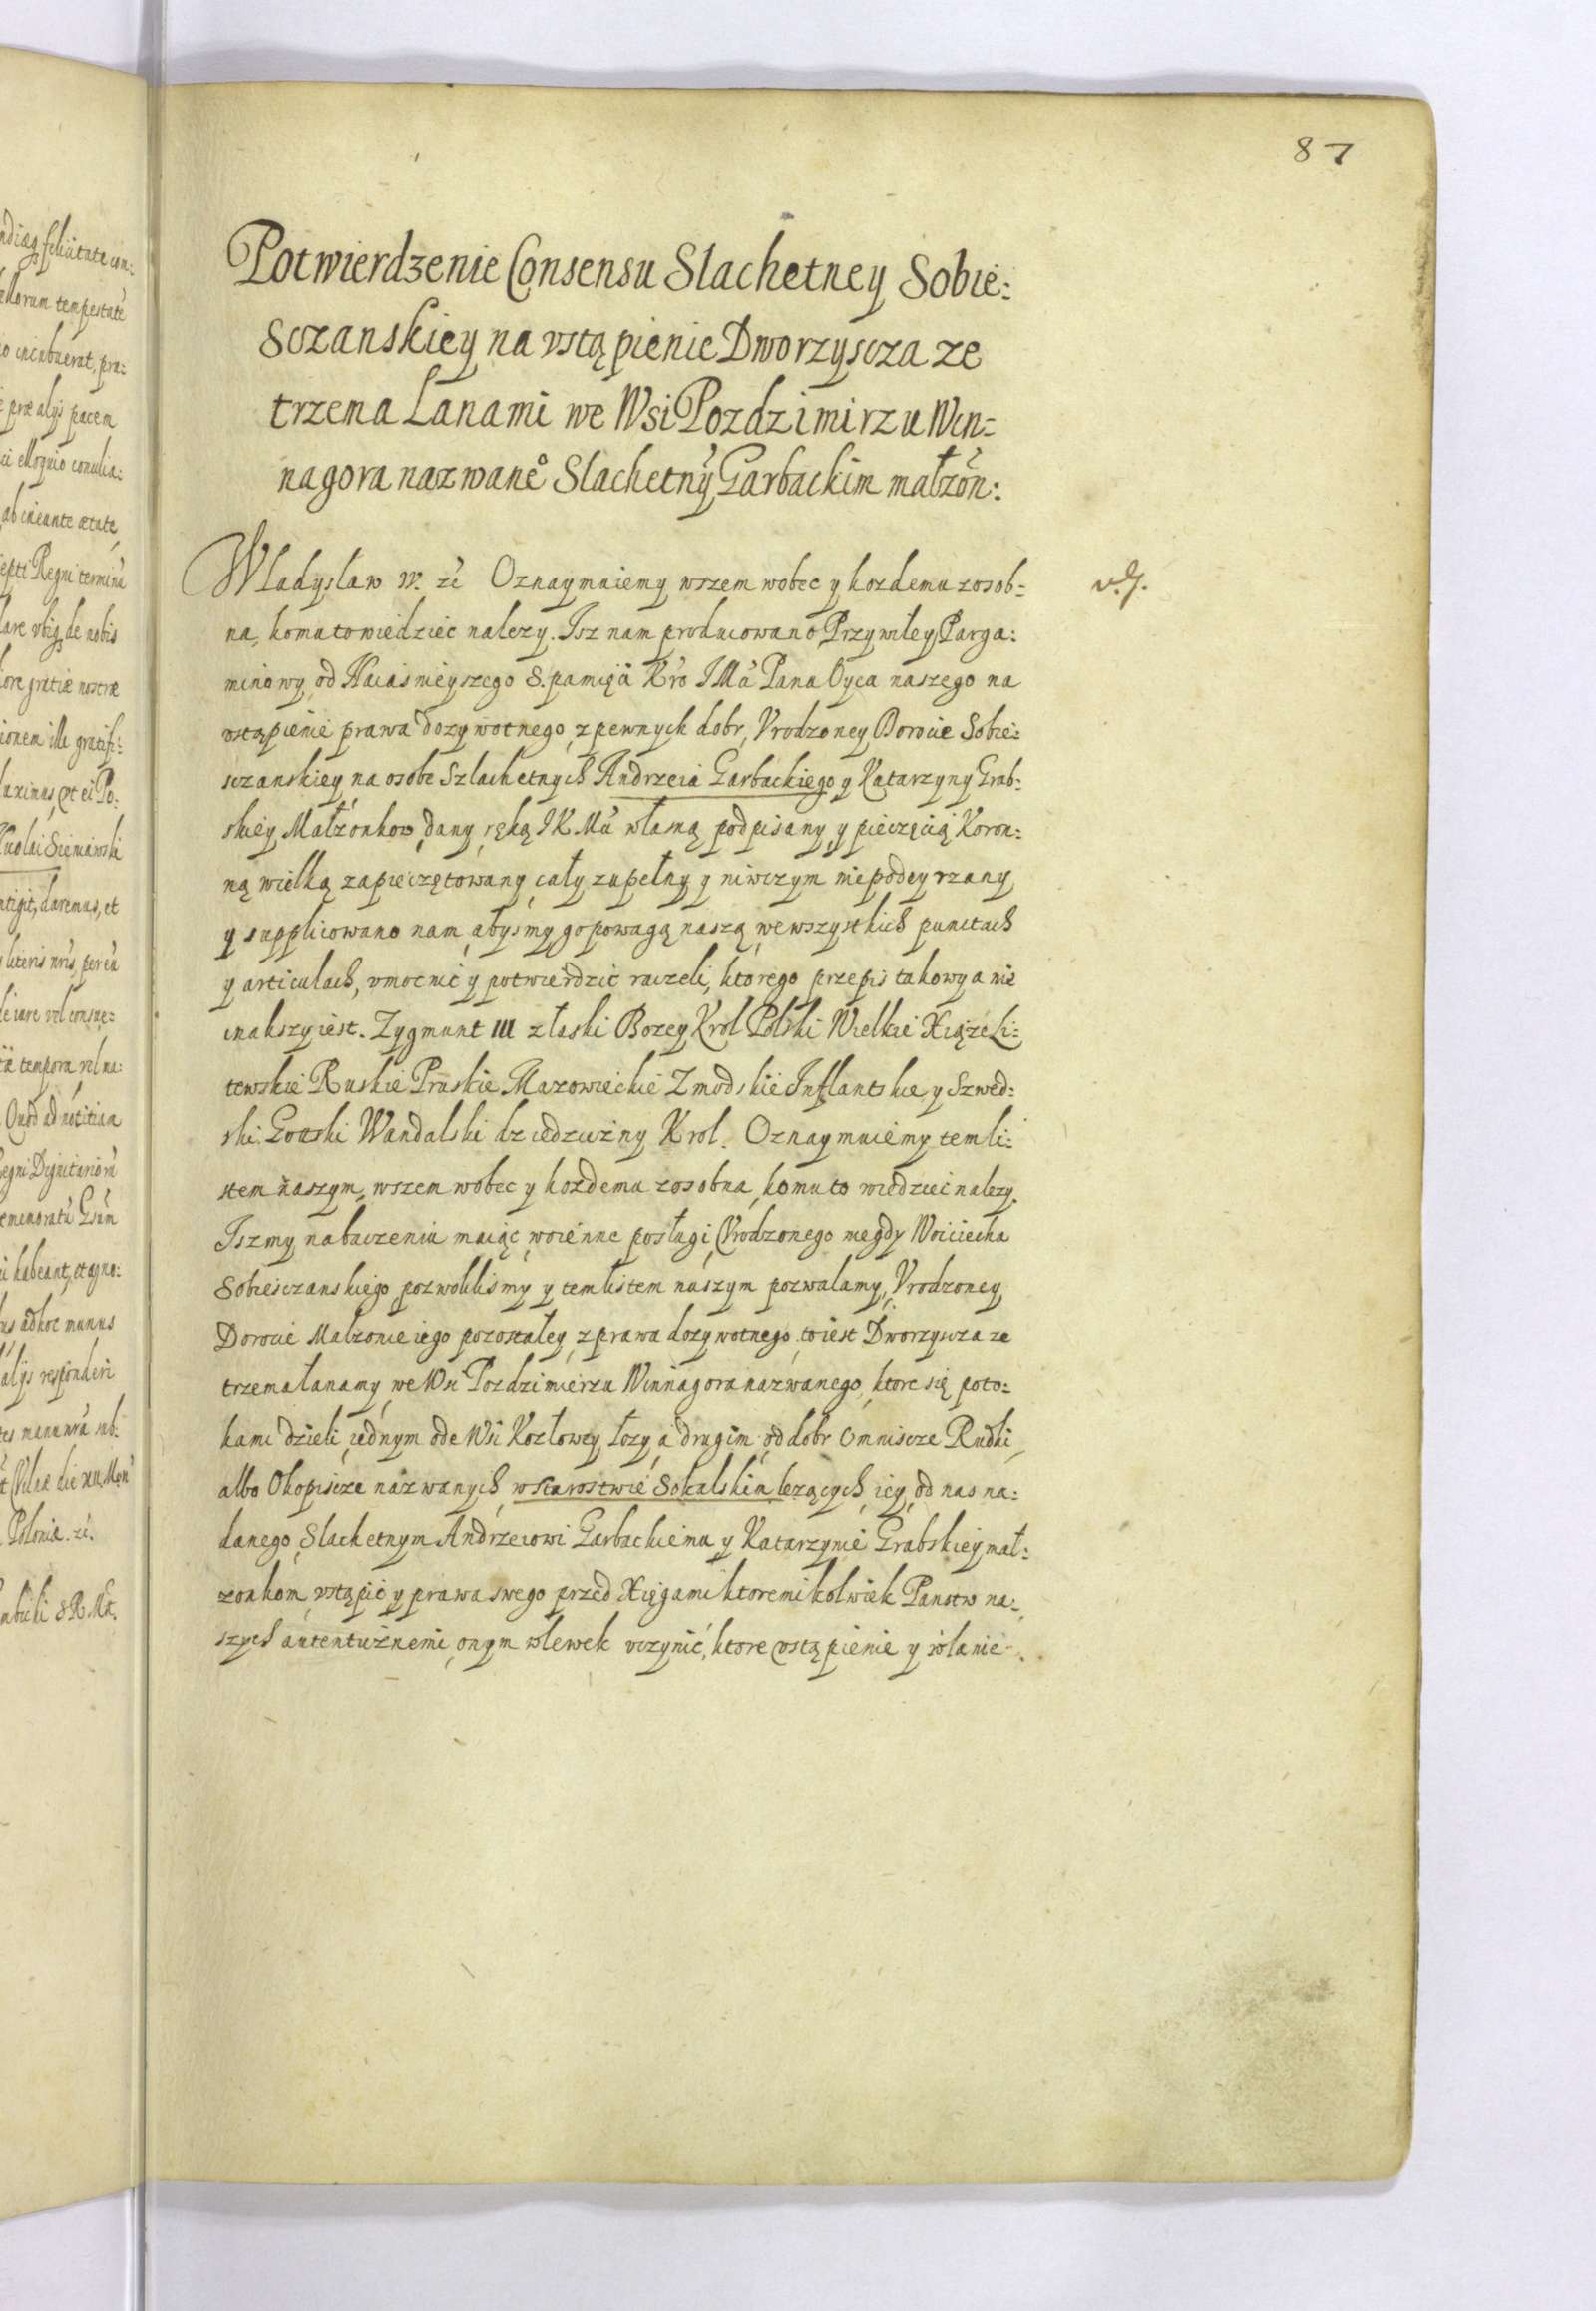 87
Potwierdzenie Consensu Slachetney Sobie:
sczanskiey na vstąpienie Dworzyscza ze
trzema Lanami we Wsi Pozdzimirzu Win=
nagora nazwane° Slachetny Garbackim małzon:
Władysław IV. zc Oznaymuiemy wszem wobec y kozdemu zosob=
na, komu to wiedziec nalezy. Isz nam producowano Przywiley Parga:
minowy od Naiasnieyszego S. pamięci Kro IMci Pana Oyca naszego na
vstąpienie prawa dozywotnego, z pewnych dobr, Vrodzoney Dorocie Sobie=
sczanskiey na osobe Szlachetnych Andrzeia Garbackiego y Katarzyny Grab=
skiey Małzonkow, dany, ręką IKMci własną podpisany, y pieczęcią Koron=
ną wielką zapieczętowany, cały, zupełny y niwczym niepodeyrzany
y supplicowano nam, abysmy go powagą naszą, we wszystkich punctach
y articulach, vmocnic y potwierdzic raczeli, ktorego przepis takowy a nie
inakszy iest. Zygmunt III z łaski Bozey Krol Polski Wielkie Xiąze Li=
tewskie Ruskie Pruskie Mazowieckie Zmodskie Inflantskie y Szwed=
ski Gottski Wandalski dziedziczny Krol. Oznaymuiemy tem li=
stem naszym, wszem wobec y kozdemu zosobna, komu to wiedziec nalezy.
Iszmy na baczeniu maiąc, woienne posługi, Vrodzonego niegdy Woiciecha
Sobiesczanskiego pozwolilismy y tem listem naszym pozwalamy, Vrodzoney
Dorocie Małzonce iego pozostałey, z prawa dozywotnego, to iest Dworzyscza ze
trzema łanamy, we Wsi Pozdzimierzu Winnagora nazwanego, ktore się poto=
kami dzieli, iednym ode Wsi Kozłowey łozy, a drugim od dobr Omniscze Rudki,
albo Okopiscze nazwanych, w starostwie Sokalskim lezących, iey, od nas na=
danego, Slachetnym Andrzeiowi Garbackiemu y Katarzynie Grabskiey mał=
zonkom, vstąpic y prawa swego przed Xięgami ktoremikolwiek Panstw na=
szych autentucznemi, onym wlewek vczynić, ktore vstąpienie y wlanie